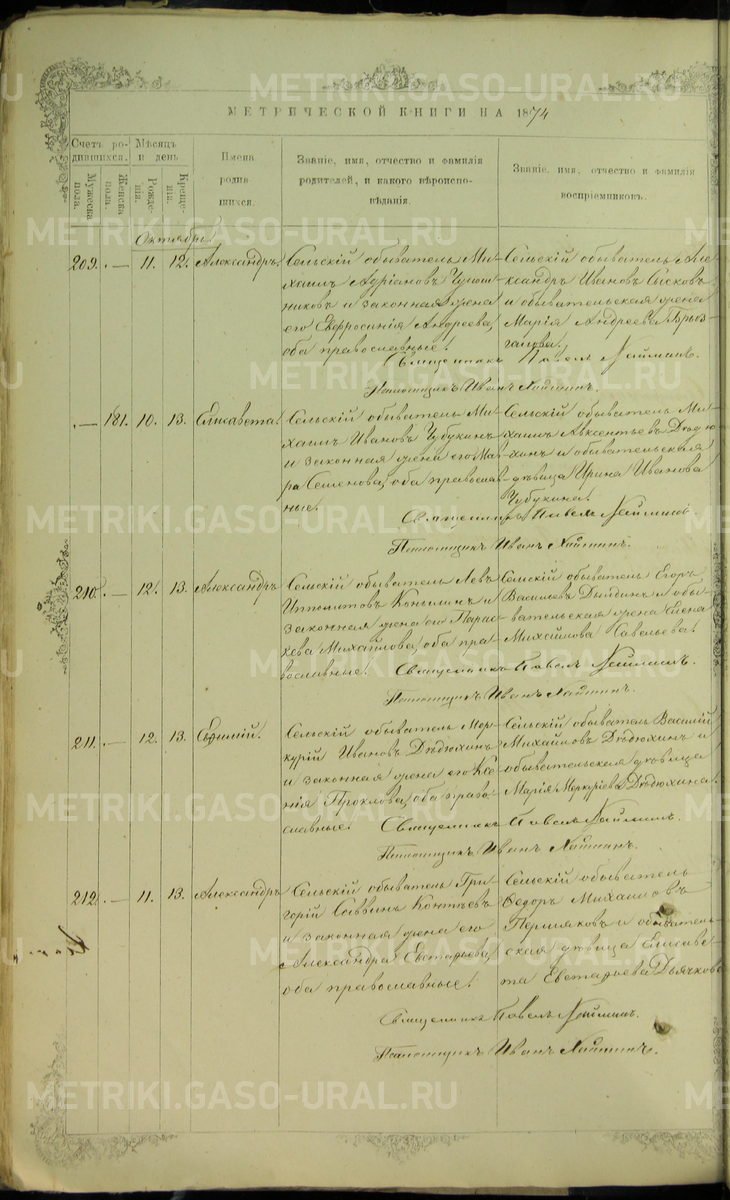 МЕТРИЧЕСКОЙ КНИГИ НА 1874
Счетъ родившихся.
Мужеска пола.
Женска пола.
Мѣсяцъ и день
Рожденія.
Крещенія.
Имена родившихся.
Званіе, имя, отчество и фамилія родителей, и какого вѣроисповѣданія.
Званіе, имя, отчество и фамилія воспріемниковъ.
Октябрь.
209. — 11. 12. Александръ.
Сельскій обыватель Ми-
хаилъ Адріановъ
никовъ и законная жена
его Евфросинія Андреева,
оба православные.
Сельскій обыватель Але-
ксандръ Ивановъ Сысковъ
и обывательская жена
Марія Андреева Брыз-
галова.
Священникъ Павелъ
Помощникъ Иванъ
— 181. 10. 13. Елисавета.
Сельскій обыватель Ми-
хаилъ Ивановъ Чубукинъ
и законная жена его Мав-
ра Семенова, оба православ-
ные.
Сельскій обыватель Ми-
хаилъ Авксентьевъ Дѣдю-
хинъ и обывательская
дѣвица Ирина Иванова
Чубукина.
Священникъ Павелъ
Помощникъ Иванъ
210. — 12. 13. Александръ
Сельскій обыватель Левъ
Ипполитовъ Копылинъ и
законная жена его Парас-
кева Михайлова, оба пра-
вославные.
Сельскій обыватель Егоръ
Васильевъ и обы-
вательская жена Елена
Михайлова Савельева.
Священникъ Павелъ
Помощникъ Иванъ
211. — 12. 13. Евѳимій.
Сельскій обыватель Мер-
курій Ивановъ Дѣдюхинъ
и законная жена его Ксе-
нія Проклова, оба право-
славные.
Сельскій обыватель Василій
Михайловъ Дѣдюхинъ и
обывательская дѣвица
Марія Меркуріева Дѣдюхина.
Священникъ Павелъ
Помощникъ Иванъ
212. — 11. 13. Александръ
Сельскій обыватель Гри-
горій Саввинъ Коптѣевъ
и законная жена его
Александра Евстафьева,
оба православные.
Сельскій обыватель
Ѳедоръ Михайловъ
Пермяковъ и обыватель-
ская дѣвица Елисаве-
та Евстафьева Дьячкова
Священникъ Павелъ
Помощникъ Иванъ
METRIKI.GASO-URAL.RU